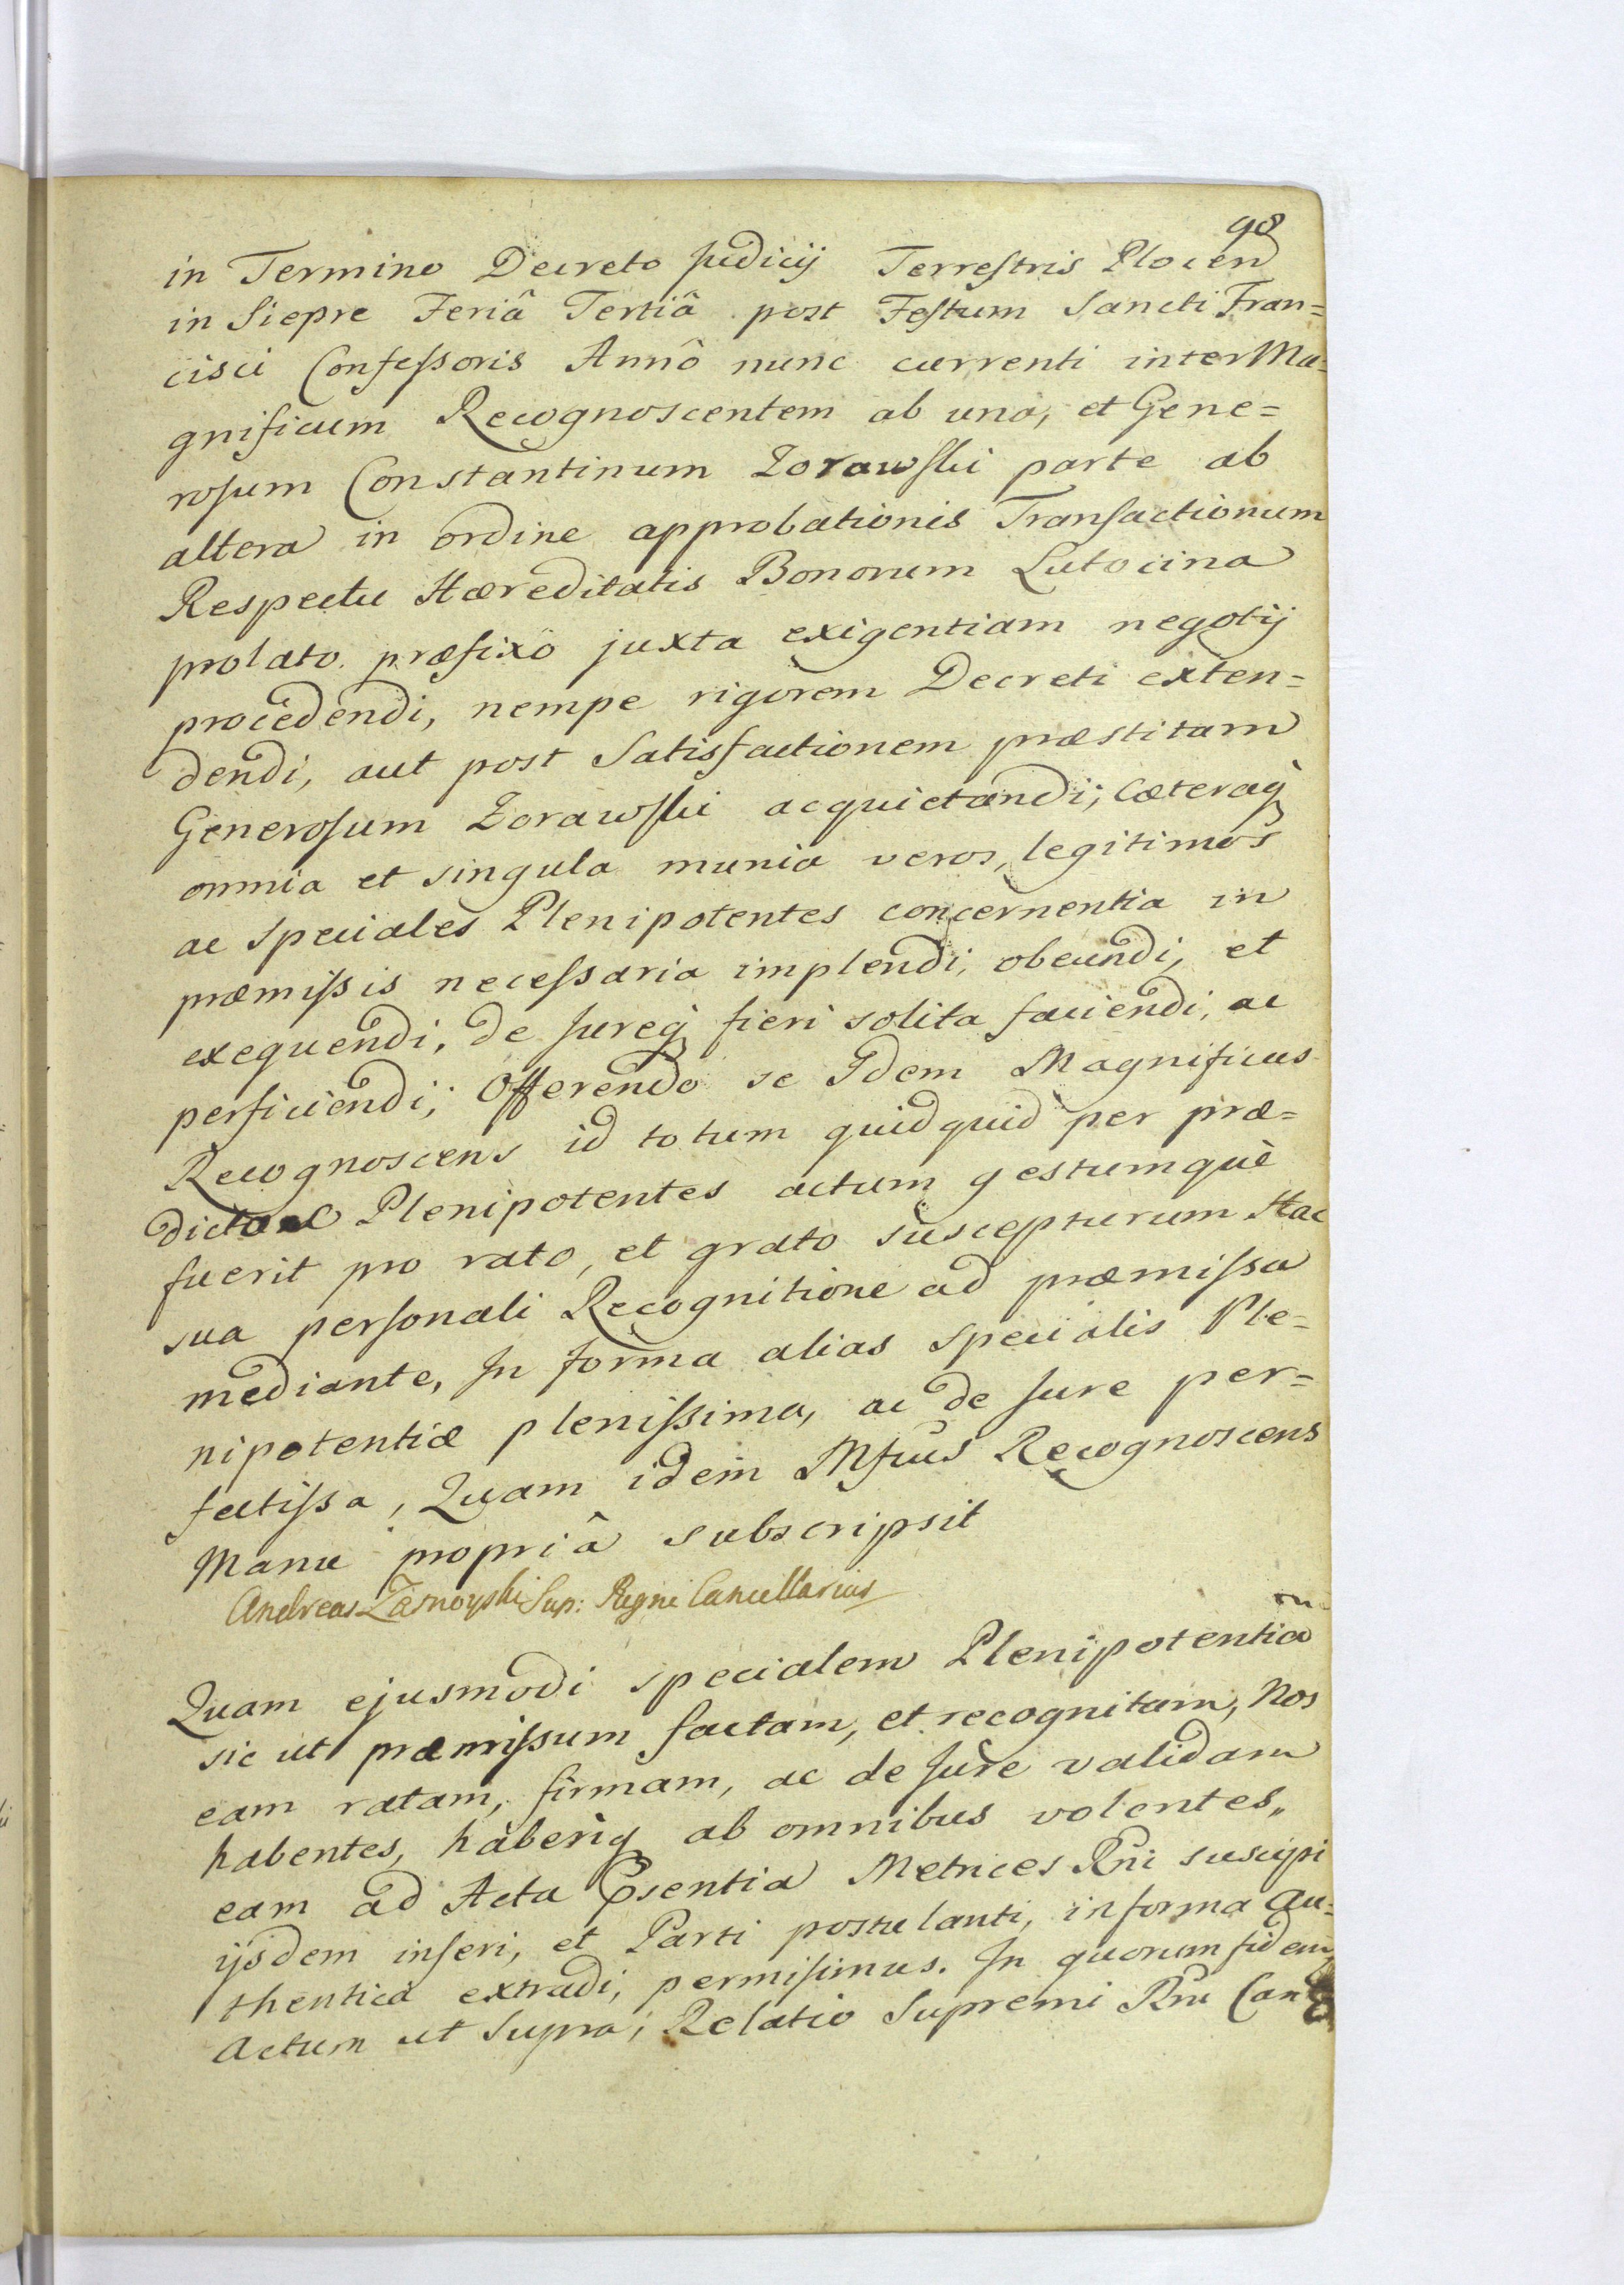 98
in Termino Decreto Judicij Terrestris Plocen
in Siepre Feriâ Tertiâ post Festum Sancti Fran=
cisci Confessoris Annô nunc currenti inter Ma=
gnificum Recognoscentem ab una, et Gene=
rosum Constantinum Zorawski parte ab
altera in ordine approbationis Transactionum
Respectu Hæreditatis Bonorum Lutocina
prolato præfixo juxta exigentiam negotij
procedendi, nempe rigorem Decreti exten=
dendi, aut post Satisfactionem præstitam
Generosum Zorawski acquietandi; cæteraq
omnia et singula munia veros, legitimos
ac speciales Plenipotentes concernentia in
præmissis necessaria implendi, obeundi, et
exequendi, de Jureq fieri solita faciendi, ac
perficiendi; Offerendo se Idem Magnificus
Recognoscens id totum quidquid per præ=
dictos Plenipotentes actum gestumquè
fuerit pro rato, et grato suscepturum Hac
sua personali Recognitione ad præmissa
mediante, In forma alias specialis Ple=
nipotentiæ plenissima, ac de Jure per=
fectissa, Quam idem Mfcus Recognoscens
Manu propriâ subscripsit
Andreas Zamoyski Sup: Regni Cancellarius
Quam ejusmodi specialem Plenipotentiam
sic ut præmissum factam, et recognitam, Nos
eam ratam, firmam, ac de Jure validam
habentes, haberiq ab omnibus volentes,,
eam ad Acta Psentia Metrices Rni suscipi
ijsdem inseri, et Parti postulanti, in forma au=
thentica extradi, permisimus. In quorum fidem
Actum ut Supra; Relatio Supremi Rni Canc